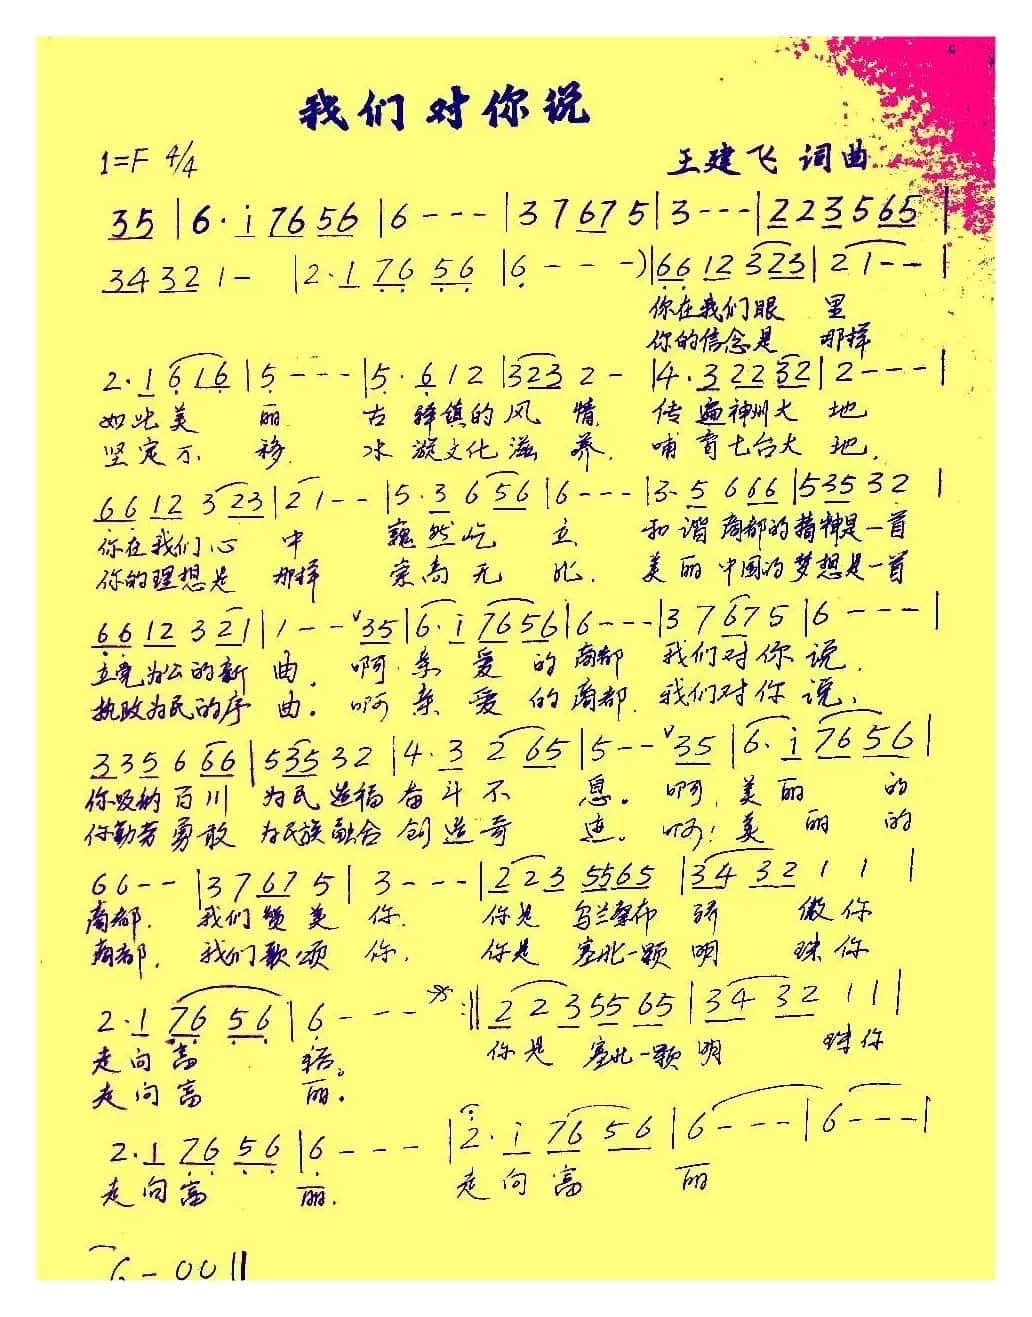 我们对你说
1=F 4/4
王建飞 词曲
35|6·i 7656|6---|37675|3---|223565|
34321-|2·1 7656|6---)|6612 323|21--|
你在我们眼 里
你的信念是 那样
2·1 616|5---|5·612|3232-|4·32232|2---|
如此美 丽 古 驿镇的风 情 传遍神州大 地
坚定不 移 水 旋文化滋 养 哺育七台大 地,
6612 323|21--|5·3656|6---|3·5666|53532|
你在我们心 中 巍然屹 立 和谐商都的精神是一首
你的理想是 那样 崇高无 比. 美丽中国的梦想是一首
6612 321|1--∨35|6·i 7656|6---|37675|6---|
立党为公的新 曲. 啊 亲 爱 的商都 我们对你说,
执政为民的序 曲. 啊 亲 爱 的商都 我们对你说,
335666|53532|4·3265|5--∨35|6·i 7656|
你吸纳百川 为民造福奋斗不 息。啊,美丽 的
你勤劳勇敢 为民族融合创造奇 迹。啊!美丽 的
66--|37675|3---|2235565|343211|
商都. 我们赞美 你. 你是 乌兰察布 骄 傲你
商都, 我们歌颂 你, 你是 塞北一颗 明 珠你
2·1 7656|6---:‖2235565|343211|
走向富 裕。 你是 塞北一颗明 珠你
走向富 丽。
2·1 7656|6---|2·i 7656|6---|6---|
走向富 丽. 走向富 丽
6-00‖